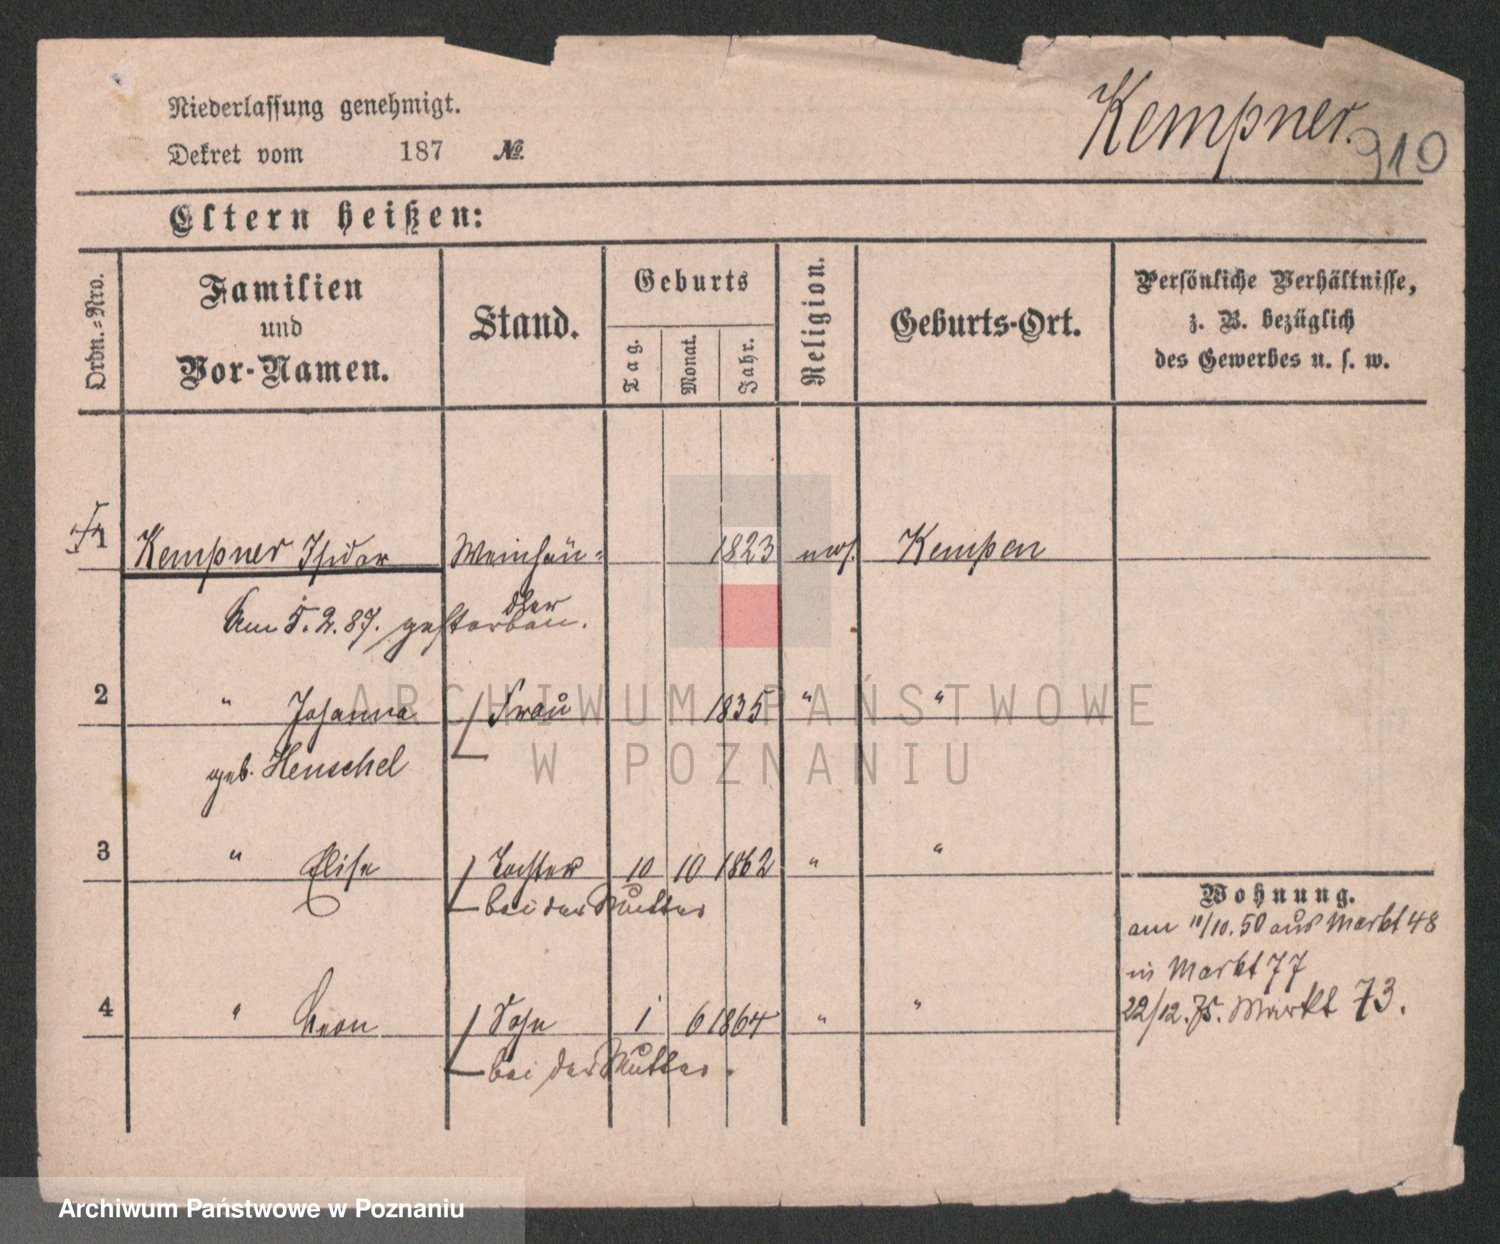 Niederlassung genehmigt.
Kempner.
Dekret vom 187 №
910
Eltern heißen:
Ordn.=Nro.
Familien
und
Vor-Namen.
Stand.
Geburts
Tag.
Monat.
Jahr.
Religion.
Geburts-Ort.
Persönliche Verhältnisse,
z. B. bezüglich
des Gewerbes u. s. w.
1 Kempner Isidor Weinhän= 1823 mos. Kempen
dler
Am 5.2.87. gestorben.
2 " Johanna Frau 1835 " "
geb. Henschel
3 " Elise Tochter 10 10 1862 " "
bei der Mutter
Wohnung.
am 10. 50 aus Markt 48
in Markt 77
22/12. 75. Markt 73.
4 " Leon Sohn 1 6 1864 " "
bei der Mutter.
ARCHIWUM PAŃSTWOWE
W POZNANIU
Archiwum Państwowe w Poznaniu